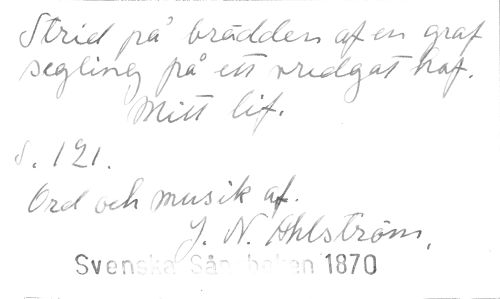 Strid på brädden af en graf
segling på ett vredgat haf.
Mitt lif.
S. 121.
Ord och musik af.
J. N. Ahlström,
Svenska Sån boken 1870